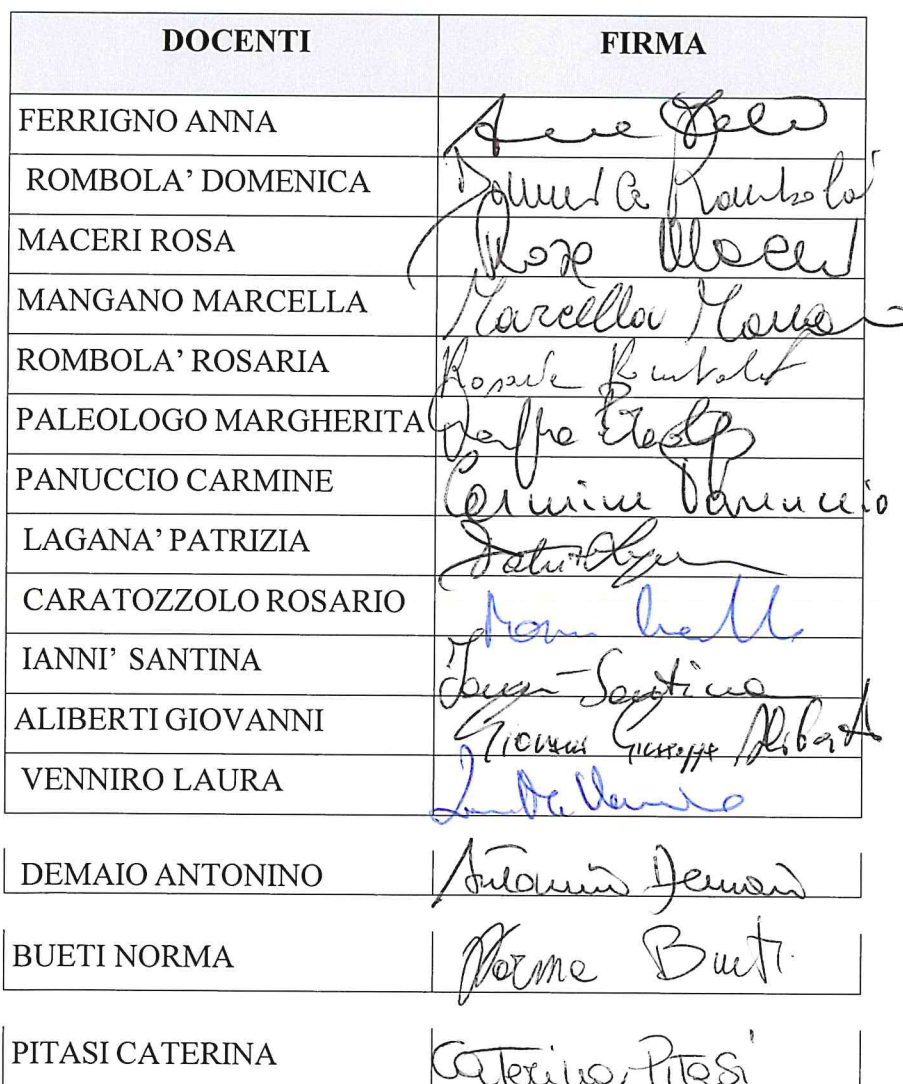 DOCENTI FIRMA
FERRIGNO ANNA
ROMBOLA' DOMENICA Domenica Rombolà
MACERI ROSA Rosa Maceri
MANGANO MARCELLA Marcella
ROMBOLA' ROSARIA Rosaria
PALEOLOGO MARGHERITA
PANUCCIO CARMINE Carmine Panuccio
LAGANA' PATRIZIA
CARATOZZOLO ROSARIO
IANNI' SANTINA Santina
ALIBERTI GIOVANNI Giovanni Giuseppe Aliberti
VENNIRO LAURA
DEMAIO ANTONINO Antonino Demaio
BUETI NORMA Norma Bueti
PITASI CATERINA Caterina Pitasi